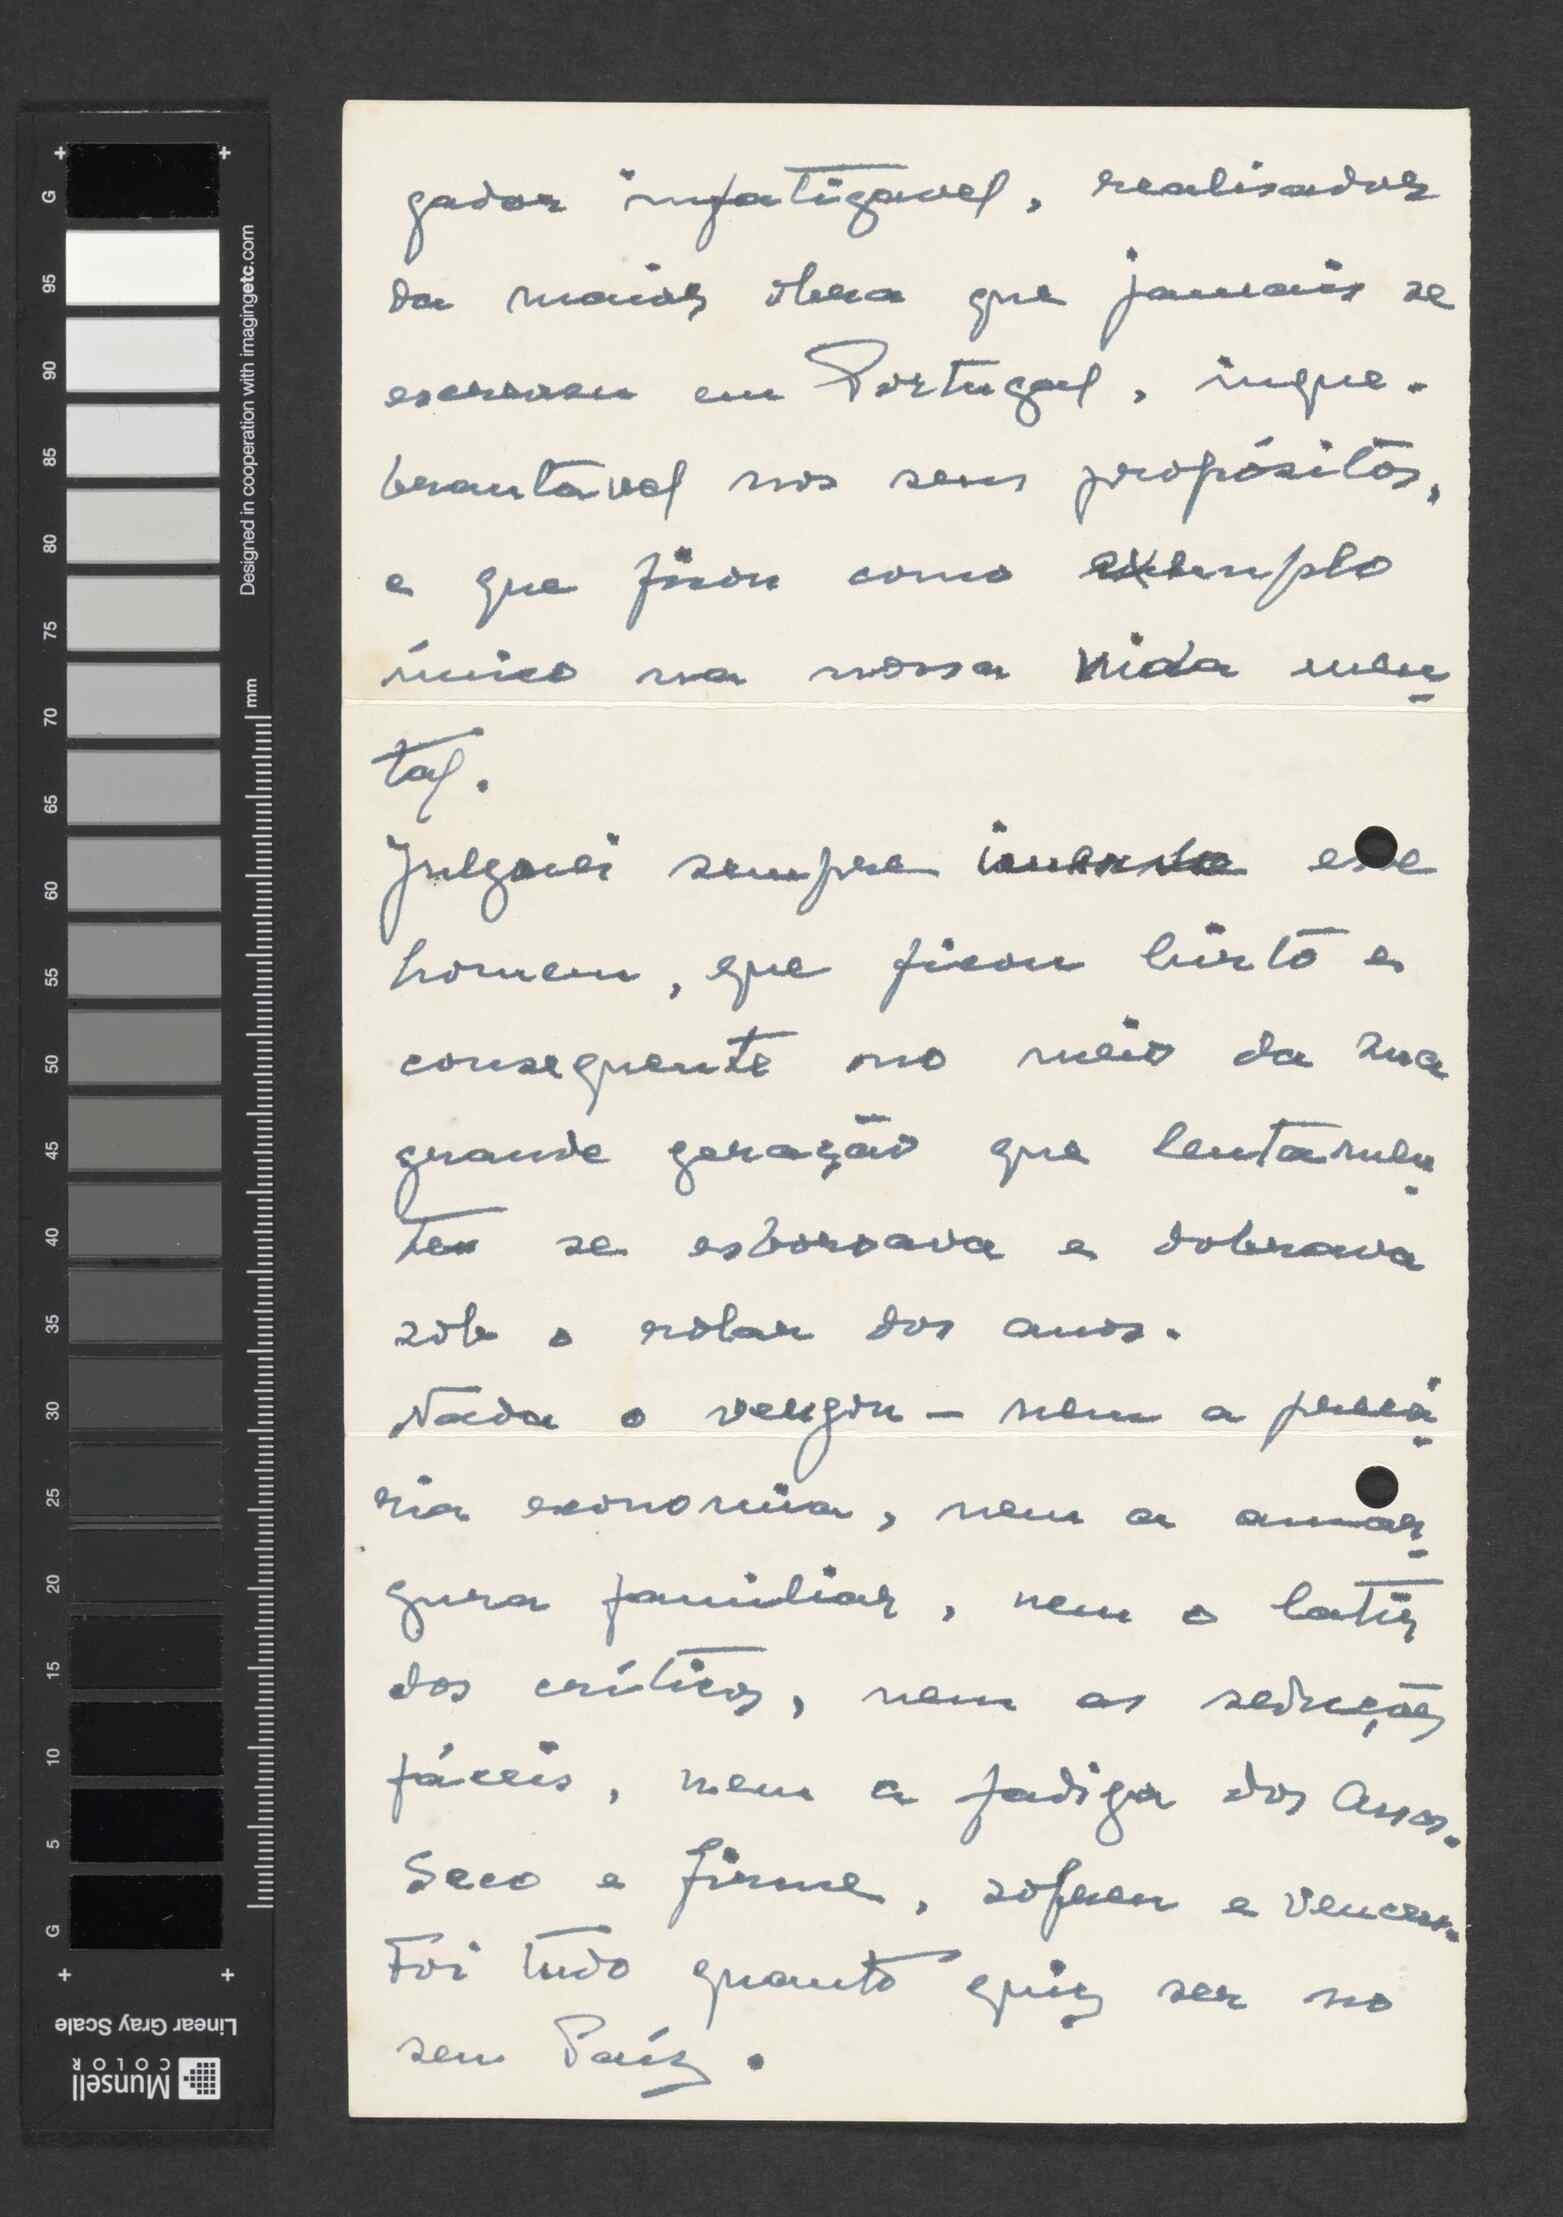 gador infatigavel, realisador
da maior obra que jamais se
escreveu em Portugal, inque-
brantavel nos seus propósitos,
e que ficou como exemplo
único na nossa vida men-
tal.
Julguei sempre esse
homem, que ficou hirto e
consequente no meio da sua
grande geração que lentamen-
te se esboroava e dobrava
sob o rolar dos anos.
Nada o vergou - nem a precá-
ria economia, nem a amar-
gura familiar, nem o latir
dos críticos, nem as seduções
fáceis, nem a fadiga dos anos.
Seco e firme, sofreu e venceu.
Foi tudo quanto quiz ser no
seu Paíz.
G
95
90
85
80
75
70
65
60
55
50
45
40
35
30
25
20
15
10
5
G
Designed in cooperation with imagingetc.com
mm
Linear Gray Scale
Munsell
COLOR